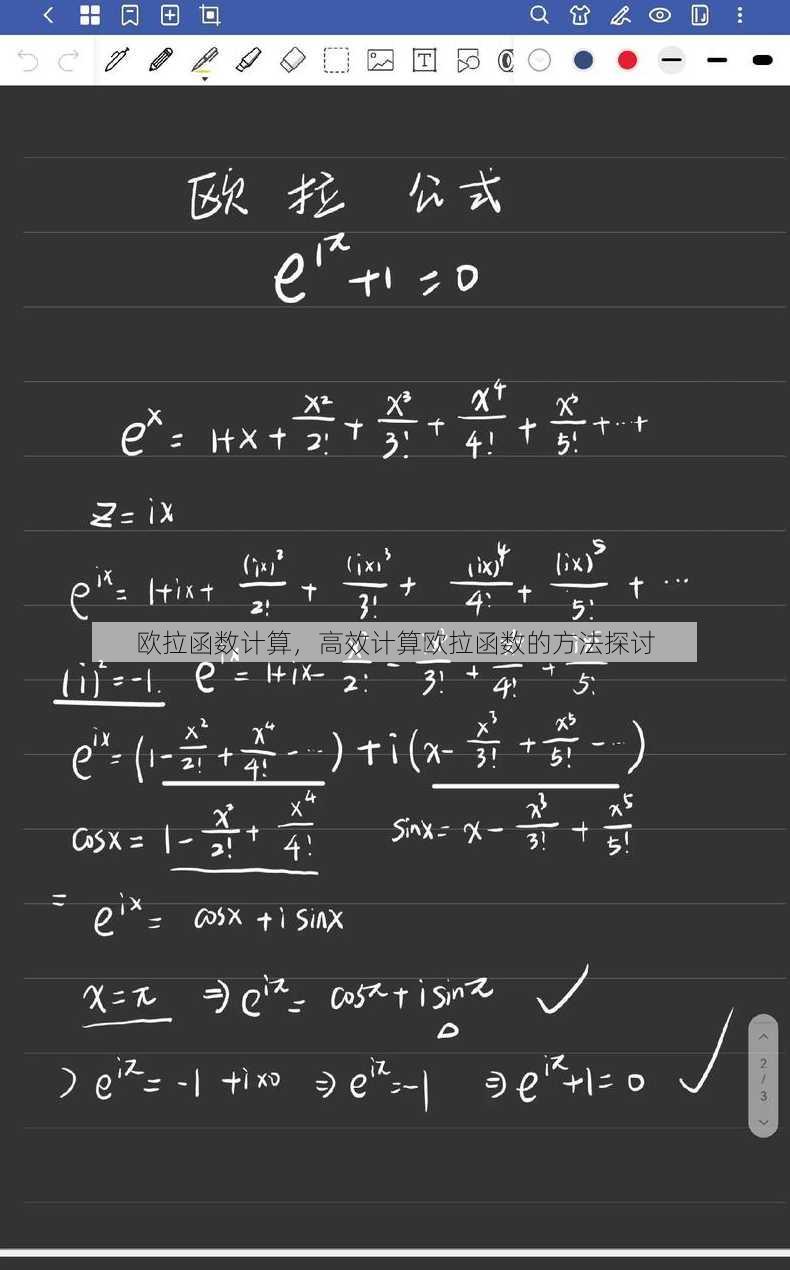 欧拉公式
e^{iπ}+1=0
e^x = 1+x+\frac{x^2}{2!}+\frac{x^3}{3!}+\frac{x^4}{4!}+\frac{x^5}{5!}+⋯+
z=ix
e^{ix}=1+ix+\frac{(ix)^2}{2!}+\frac{(ix)^3}{3!}+\frac{(ix)^4}{4!}+\frac{(ix)^5}{5!}+⋯
欧拉函数计算，高效计算欧拉函数的方法探讨
(i)^2=-1. e^{ix}=1+ix-\frac{}{2!}-\frac{}{3!}+\frac{}{4!}+\frac{}{5!}
e^{ix}=(1-\frac{x^2}{2!}+\frac{x^4}{4!}-⋯)+i(x-\frac{x^3}{3!}+\frac{x^5}{5!}-⋯)
cosx=1-\frac{x^2}{2!}+\frac{x^4}{4!} sinx=x-\frac{x^3}{3!}+\frac{x^5}{5!}
= e^{ix}=cosx+i sinx
x=π ⇒ e^{iπ}=cosπ+i sinπ ✓
2
/
3
⟩ e^{iπ}=-1+i×0 ⇒ e^{iπ}=-1 ⇒ e^{iπ}+1=0 ✓